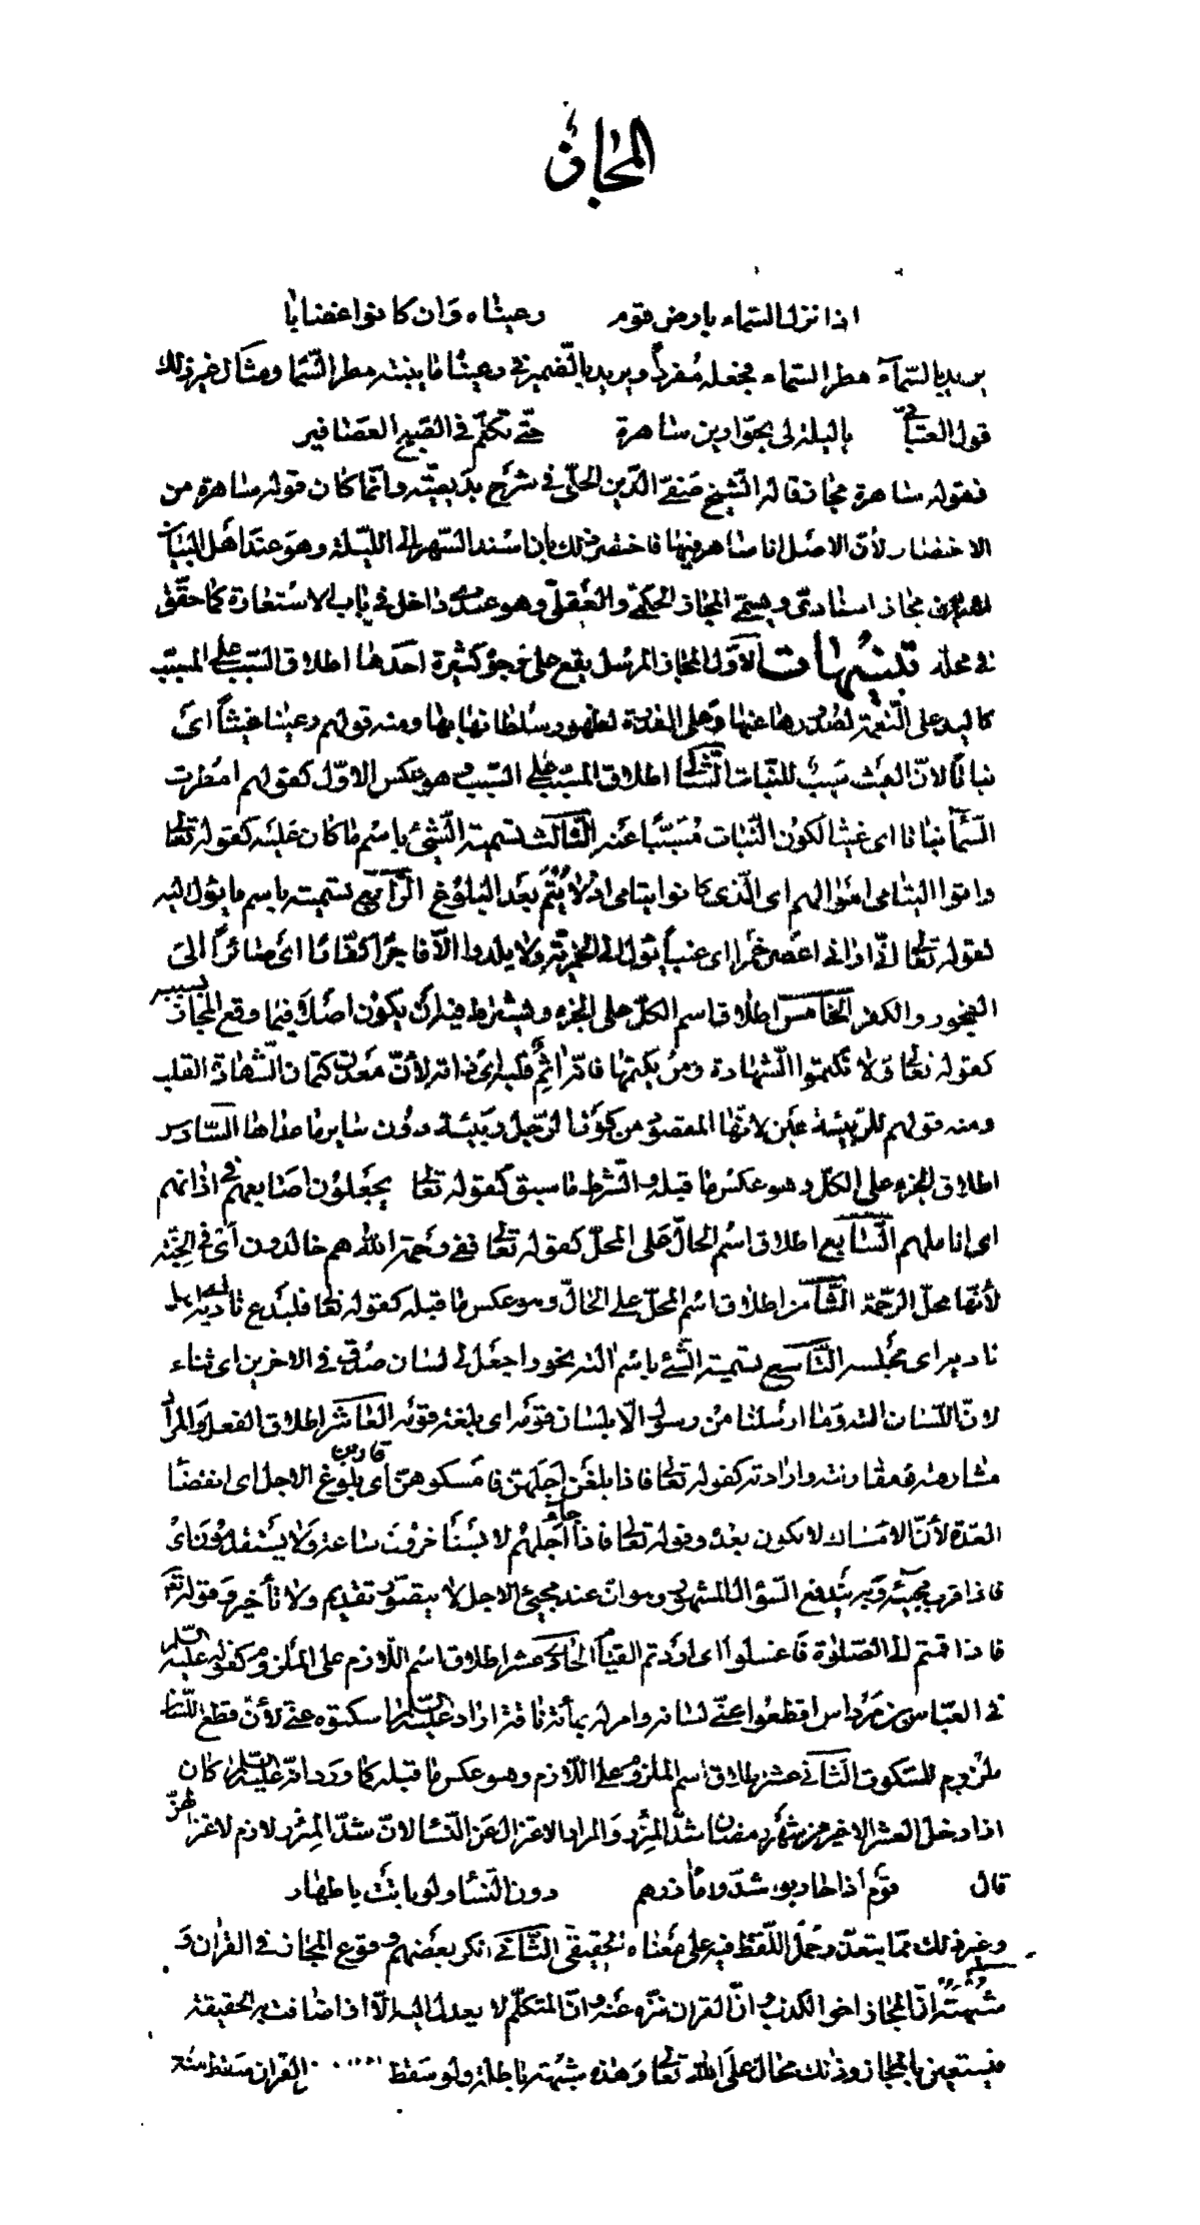 المجاز
اذا نزل السماء بارض قوم رعيناه وان كانوا غضابا
يريد بالسماء مطر السماء فجعله مفرداً ويريد بالضمير في رعينا ما ينبته مطر السما ومثال غير ذلك
قول العتابي يا ليلة لي بحوارين ساهرة حتى تكلم في الصبح العصافير
فقوله ساهرة مجاز قاله الشيخ صفي الدين الحلي في شرح بديعيته وانما كان قوله ساهرة من
الاختصار لأن الاصل انا ساهر فيها فاختصر ذلك بان اسند السهر الى الليلة وهو عند اهل البيان
مجاز اسنادي ويسمى المجاز الحكمي والعقلي وهو عندي داخل في باب الاستعارة كما حقق
في محله تنبيهات الأول المجاز المرسل يقع على وجوه كثيرة احدها اطلاق السبب على المسبب
كاليد على النعمة لصدورها عنها وعلى القدرة لظهور سلطانها بها ومنه قولهم رعينا غيثاً اي
نباتاً لان الغيث سبب للنبات الثاني اطلاق المسبب على السبب وهو عكس الاول كقولهم امطرت
السماء نباتا اي غيثا لكون النبات مسبباً عنه الثالث تسمية الشيء باسم ما كان عليه كقوله تعالى
واتوا اليتامى اموالهم اي الذي كانوا يتامى اذ لا يتم بعد البلوغ الرابع تسميته باسم ما يؤل اليه
كقوله تعالى اني اراني اعصر خمرا اي عنباً يؤل الى الخمرية ولا يلدوا الا فاجراً كفارا اي صائراً الى
الفجور والكفر الخامس اطلاق اسم الكل على الجزء ويشترط فيه ان يكون اصلا فيما وقع المجاز بسببه
كقوله تعالى ولا تكتموا الشهادة ومن يكتمها فانه اثم قلبه اي ذاته لأن معدن كتمان الشهادة القلب
ومنه قولهم للربيئة عين لانها المقصود من كون الرجل ربيئة دون ساير ما عداها السادس
اطلاق الجزء على الكل وهو عكس ما قبله والشرط ما سبق كقوله تعالى يجعلون اصابعهم في اذانهم
اي اناملهم السابع اطلاق اسم الحال على المحل كقوله تعالى ففي رحمة الله هم خالدون اي في الجنة
لأنها محل الرحمة الثامن اطلاق اسم المحل على الحال وهو عكس ما قبله كقوله تعالى فليدع ناديه اي اهل
ناديه اي مجلسه التاسع تسمية الشيء باسم الته نحو واجعل لي لسان صدق في الاخرين اي ثناء
لان اللسان الته وما ارسلنا من رسول الا بلسان قومه اي بلغة قومه العاشر اطلاق الفعل والمراد
مشارفته ومقارنته وارادته كقوله تعالى فاذا بلغن اجلهن فامسكوهن اي قاربن بلوغ الاجل اي انقضا
العدة لأن الامساك لا يكون بعده وقوله تعالى فاذا جاء اجلهم لا يستاخرون ساعة ولا يستقدمون اي
فاذا قرب مجيئه وبه يندفع السؤال المشهور وهو ان عند مجيئ الاجل لا يتصور تقديم ولا تأخير وقوله تعالى
فاذا قمتم الى الصلوة فاغسلوا اي اردتم القيام الحادي عشر اطلاق اسم اللازم على الملزوم كقوله عليه السلم
في العباس بن مرداس اقطعوا عني لسانه وامر له بمأة ناقة اراد عليه السلم اسكتوه عني لأن قطع اللسان
ملزوم للسكوت الثاني عشر اطلاق اسم الملزوم على اللازم وهو عكس ما قبله كما ورد انه عليه السلم كان
اذا دخل العشر الاخير من شهر رمضان شد المئزر والمراد الاعتزال عن النسا لان شد المئزر لازم لاعتزالهن
قال قوم اذا حاربوا شدوا مأزرهم دون النسا ولو باتت باطهار
وغير ذلك مما يتعذر حمل اللفظ فيه على معناه الحقيقي الثاني انكر بعضهم وقوع المجاز في القران و
شبهته ان المجاز اخو الكذب وان القران منزه عنه وان المتكلم لا يعدل اليه الا اذا ضاقت به الحقيقة
فيستعين بالمجاز وذلك محال على الله تعالى وهذه شبهة باطلة ولو سقط القران سقط منه